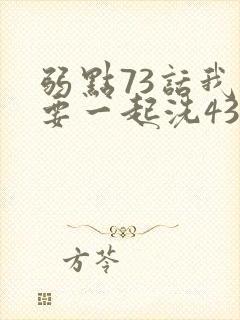 弱點73話我
要一起洗43
方苓